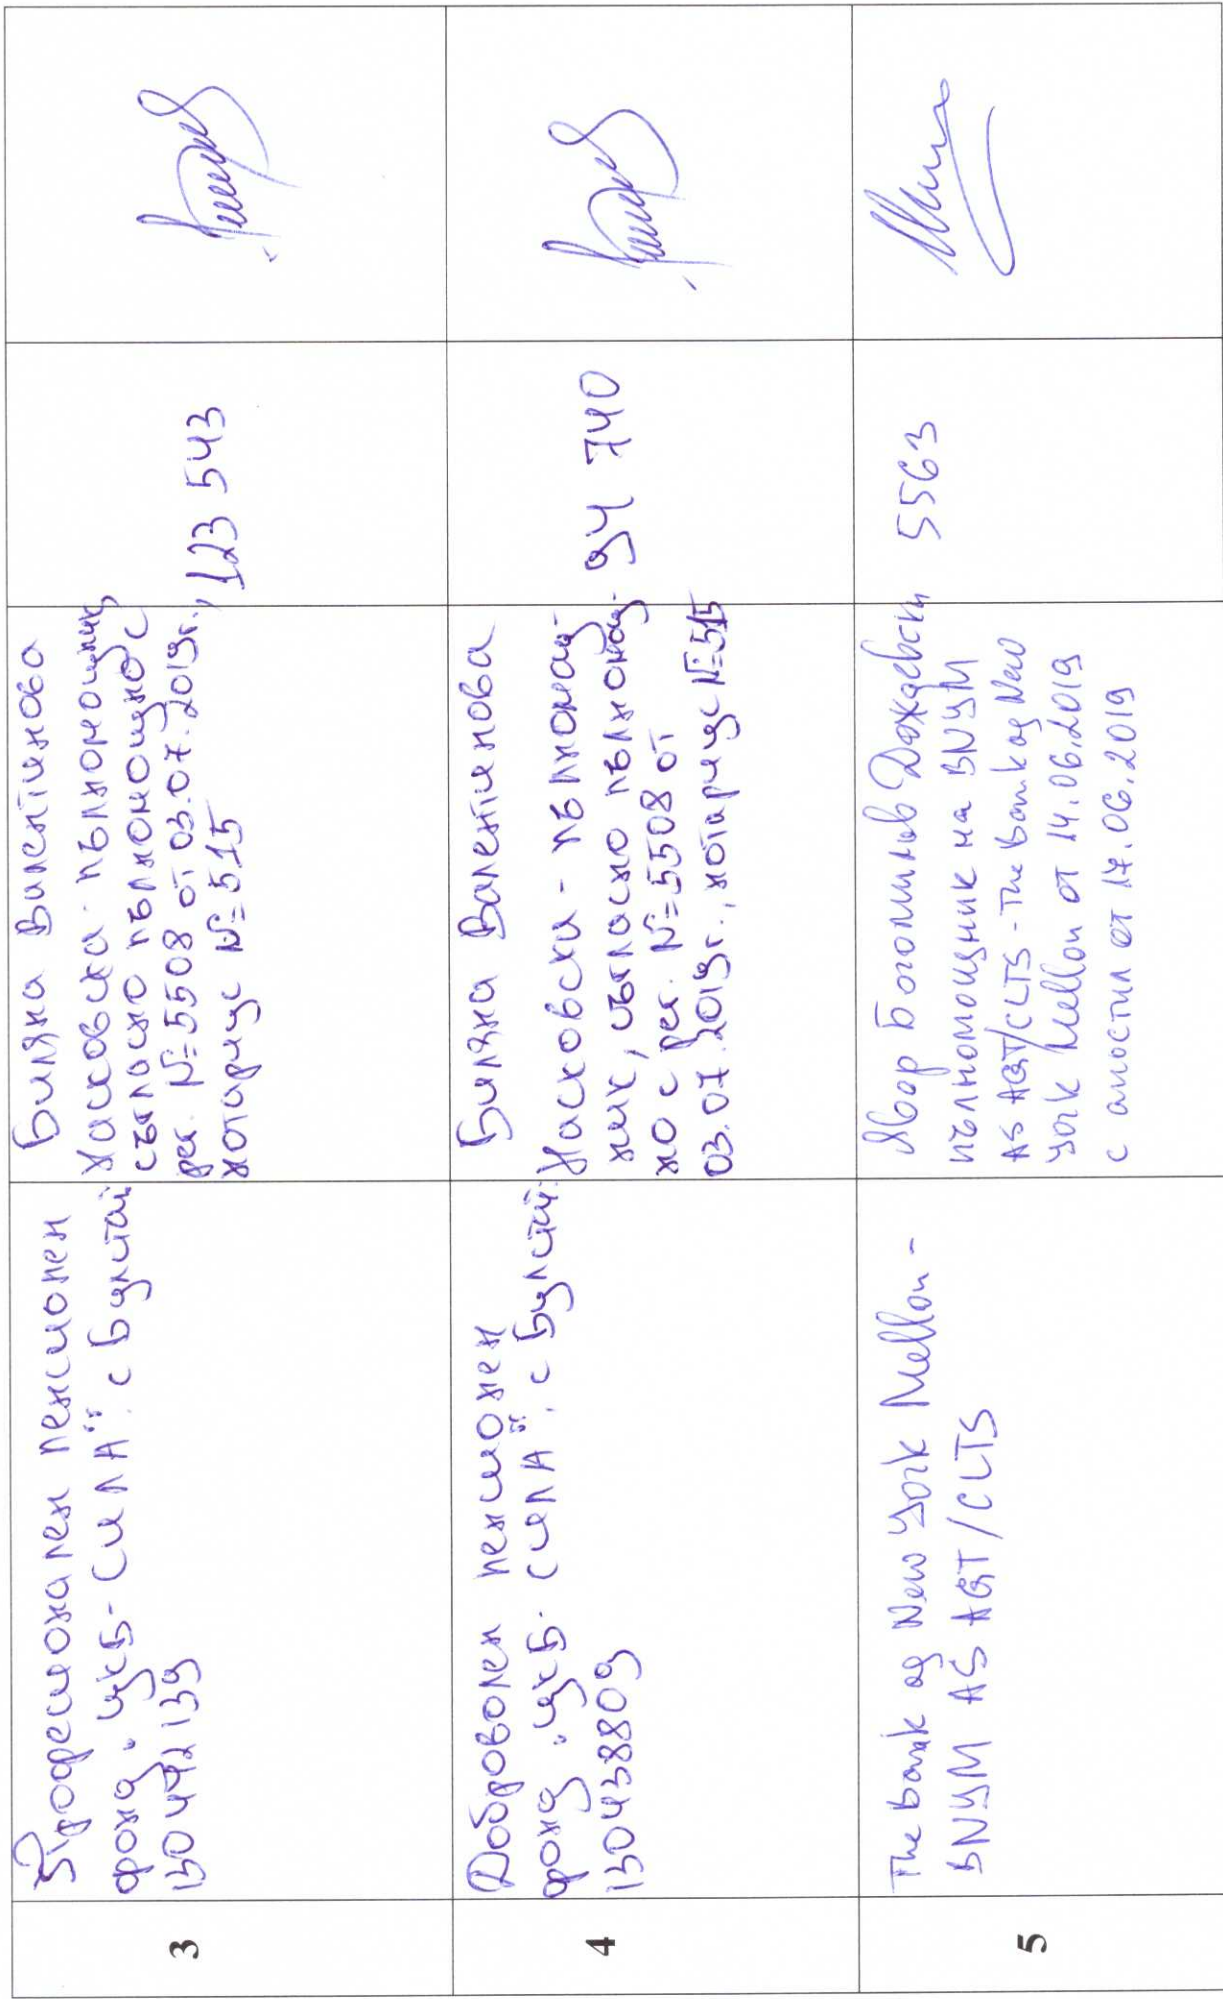 3
Професионален пенсионен
фонд „ЦКБ-СИЛА" с Булстат
130492139
Биляна Валентинова
Хасковска - пълномощник
съгласно пълномощно с
рег. №=5508 от 03.07.2019г.,
нотариус №=515
123 543
4
Доброволен пенсионен
фонд „ЦКБ-СИЛА", с Булстат:
130438809
Биляна Валентинова
Хасковска - пълномощ-
ник, съгласно пълномощ-
но с рег. №=5508 от
03.07.2019г., нотариус №=515
94 740
5
The bank of New York Mellon -
BNYM AS AGT/CLTS
Явор Богомилов Дождевски
пълномощник на BNYM
AS AGT/CLTS - The bank of New
York Mellon от 14.06.2019
с апостил от 17.06.2019
5563